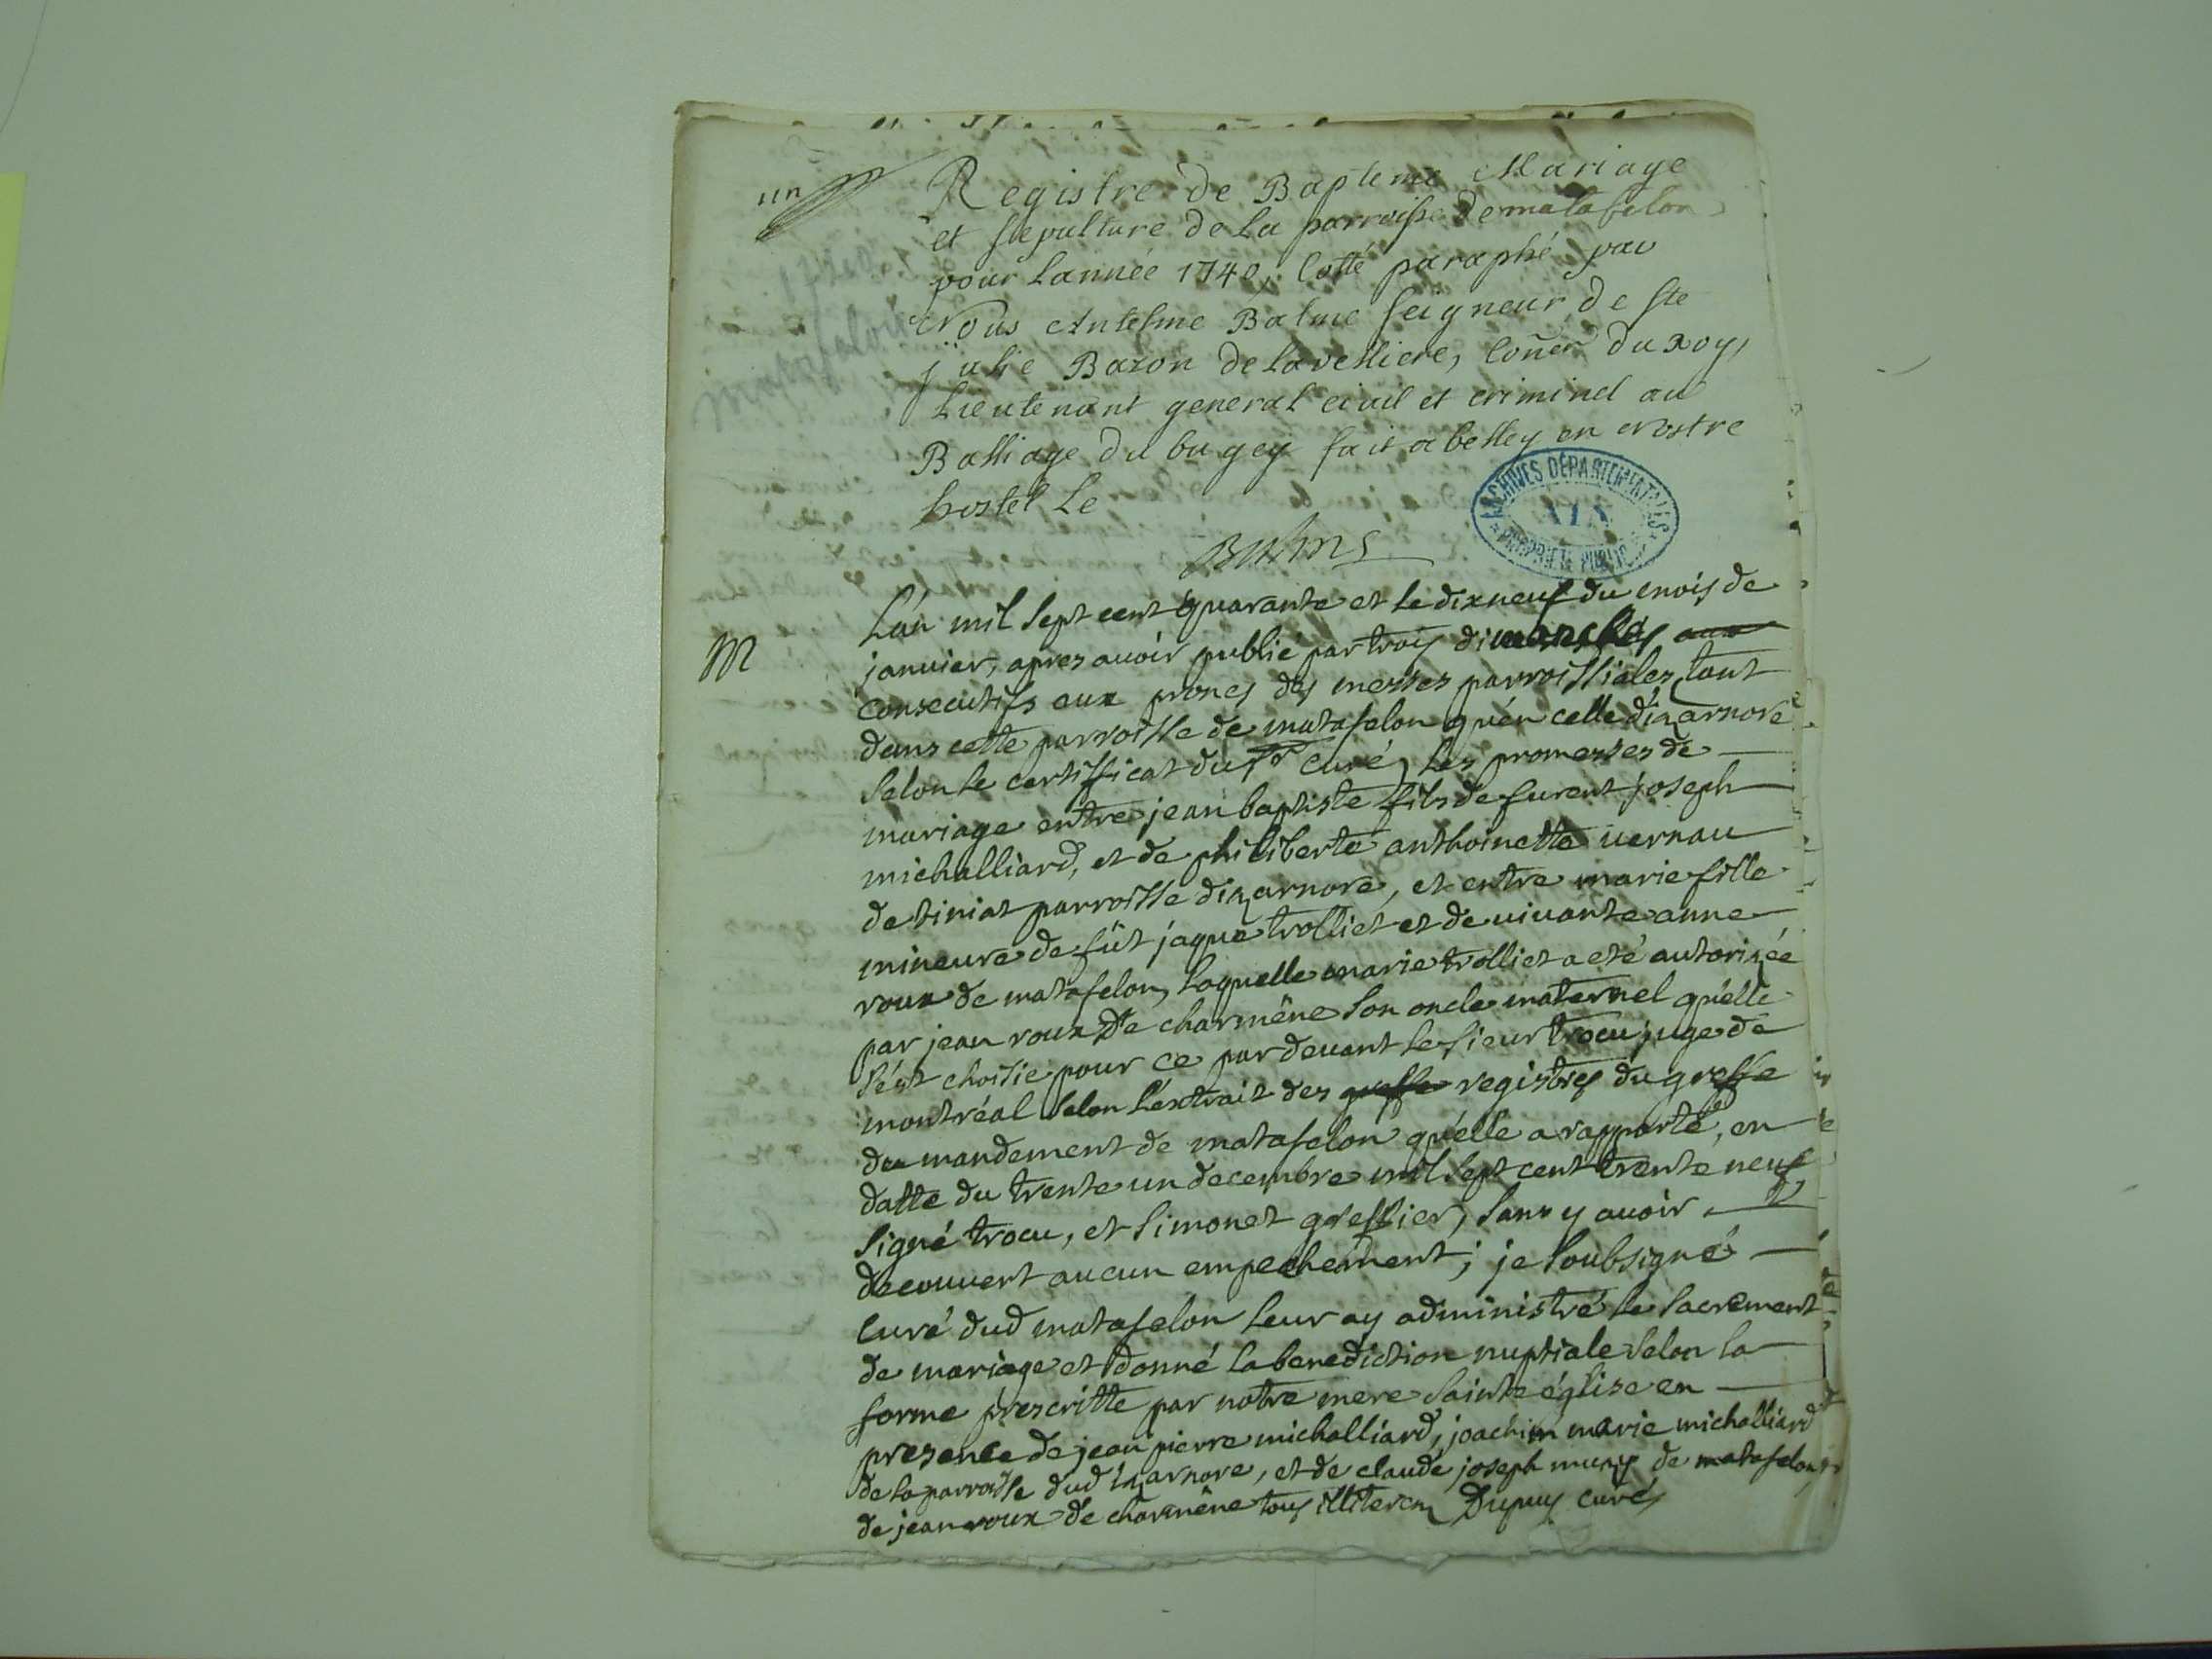 un
Registre de Bapteme Mariage
et sepulture de la parroisse de matafelon
pour lannée 1740, Cotté paraphé par
Nous Antelme Balme seigneur de ste
julie Baron de lavelliere, Coner du Roy,
Lieutenant general civil et criminel au
Balliage du bugey fait a belley en nostre
hostel le
Balme
ARCHIVES DÉPARTEMENTALES
AIN
PROPRIÉTÉ PUBLIQUE
M
L'an mil sept cent quarante et le dixneuf du mois de
janvier, apres avoir publié par trois dimanches aux
consecutifs aux prones des messes parroissiales, tant
dans cette parroisse de matafelon qu'en celle d'izarnore
selon le certifficat du sr curé, les promesses de
mariage entre jean baptiste fils de furent joseph
michalliard, et de philiberte anthoinette vernau
de tiniat parroisse d'izarnore, et entre marie fille
mineure de fût jaque trolliet et de vivante anne
roux de matafelon, laquelle marie trolliet a eté autorizée
par jean roux de charmêne son oncle maternel qu'elle
s'ést choisie pour ce par devant le sieur trocu juge de
montréal selon l'extrait des greffe registres du greffe
du mandement de matafelon qu'elle a rapporté, en
datte du trente un decembre mil sept cent trente neuf
signé trocu, et simonet greffier, sans y avoir
decouvert aucun empechement; je soubsigné
curé dud matafelon leur ay administré le sacrement
de mariage et donné la benediction nuptiale selon la
forme prescritte par notre mere sainte église en
presence de jean pierre michalliard, joachim marie michalliard
de la parroisse dud izarnore, et de claude joseph muny de matafelon,
de jean roux de charmêne tous illiterez Dupuy curé